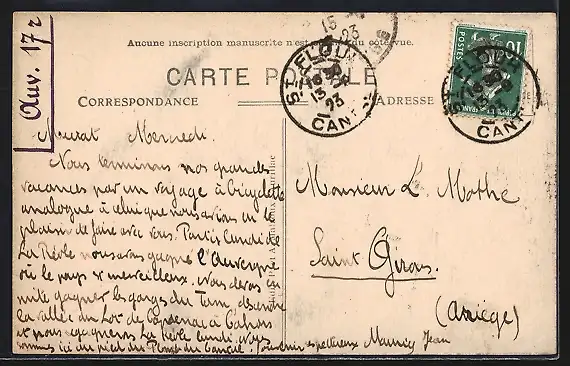 Auv. 17 r
Aucune inscription manuscrite n'est du côté vue.
CARTE POSTALE
CORRESPONDANCE
ADRESSE
ST FLOUR
13
23
CANTAL
ST FLOUR
13
23
CANTAL
15
23
POSTES
10
Murat Mercredi.
Nous terminons nos grandes
vacances par un voyage à bicyclette
analogue à celui que nous avions eu le
plaisir de faire avec vous. Partis lundi de
La Réole nous avons gagné l'Auvergne
où le pays est merveilleux. Nous devons en
suite gagner les gorges du Tarn, descendre
la vallée du Lot de Capdenac à Cahors
et nous gagnerons La Réole lundi. Nous
sommes ici au pied du Plomb du Cantal. Souvenirs respectueux Jean
Monsieur L. Mothe
Saint Girons.
(Ariège)